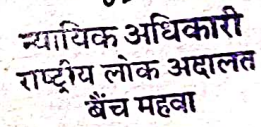 न्यायिक अधिकारी
राष्ट्रीय लोक अदालत
बैंच महवा